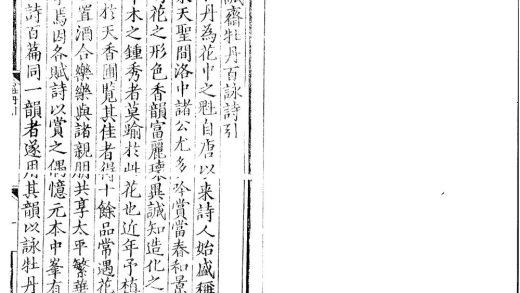 齋牡丹百詠詩引
丹為花中之魁自唐以来詩人始盛稱
天聖間洛中諸公尤多吟賞當春和景
花之形色香韻富麗瓌異誠知造化之
木之鍾秀者莫踰於此花也近年予植
於天香圃覧其佳者得十餘品常遇花
置酒合樂樂與諸親朋共享太平繁華
焉因各賦詩以賞之偶憶元本中峯有
詩百篇同一韻者遂用其韻以詠牡丹